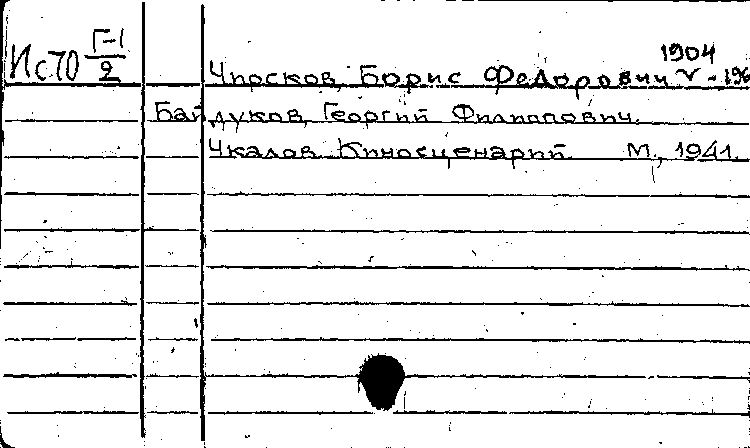 Ис70 Г-1/2
1904
Чирсков, Борис Федорович - 196
Байдуков, Георгий Филиппович.
Чкалов. Киносценарий. М., 1941.